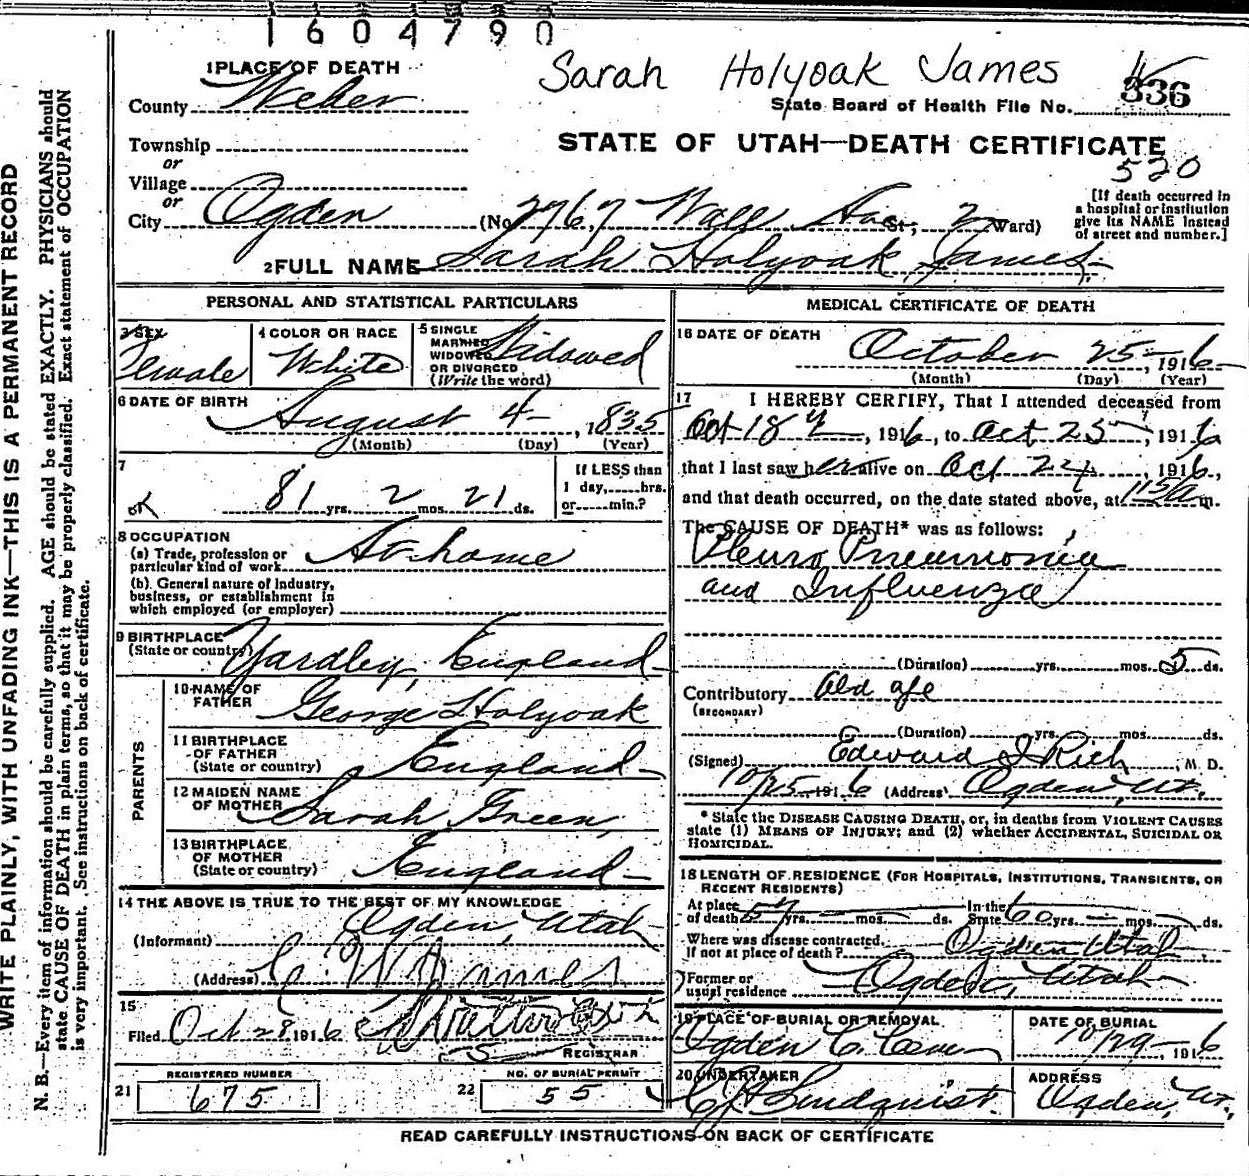 1604790
Sarah Holyoak James
1 PLACE OF DEATH
County Weber
State Board of Health File No. 336
Township
STATE OF UTAH—DEATH CERTIFICATE
520
or
Village
or
City Ogden (No. 2767 Wall Ave St.; 2 Ward)
[If death occurred in a hospital or institution give its NAME instead of street and number.]
2 FULL NAME Sarah Holyoak James
PERSONAL AND STATISTICAL PARTICULARS
3 SEX Female
4 COLOR OR RACE White
5 SINGLE MARRIED WIDOWED OR DIVORCED (Write the word) Widowed
6 DATE OF BIRTH August 4- , 1835
(Month) (Day) (Year)
7
81 yrs. 2 mos. 21 ds.
If LESS than 1 day,.....hrs. or.....min.?
8 OCCUPATION
(a) Trade, profession or particular kind of work At home
(b) General nature of industry, business, or establishment in which employed (or employer)
9 BIRTHPLACE (State or country) Yardley, England
PARENTS
10 NAME OF FATHER George Holyoak
11 BIRTHPLACE OF FATHER (State or country) England
12 MAIDEN NAME OF MOTHER Sarah Green
13 BIRTHPLACE OF MOTHER (State or country) England
14 THE ABOVE IS TRUE TO THE BEST OF MY KNOWLEDGE
Ogden, Utah
(Informant)
(Address) James
15
Filed Oct 28 1916
REGISTRAR
REGISTERED NUMBER
21 675
NO. OF BURIAL PERMIT
22 55
MEDICAL CERTIFICATE OF DEATH
16 DATE OF DEATH October 25- , 1916
(Month) (Day) (Year)
17 I HEREBY CERTIFY, That I attended deceased from
Oct 18 , 1916, to Oct 25 , 1916
that I last saw her alive on Oct 24 , 1916,
and that death occurred, on the date stated above, at m.
The CAUSE OF DEATH* was as follows:
Pleuro Pneumonia
and Influenza
(Duration) yrs. mos. 5 ds.
Contributory Old age
(SECONDARY)
(Duration) yrs. mos. ds.
(Signed) Edward I Rich, M. D.
10/25 1916 (Address) Ogden, Ut.
* State the DISEASE CAUSING DEATH, or, in deaths from VIOLENT CAUSES
state (1) MEANS OF INJURY; and (2) whether ACCIDENTAL, SUICIDAL OR
HOMICIDAL.
18 LENGTH OF RESIDENCE (FOR HOSPITALS, INSTITUTIONS, TRANSIENTS, OR
RECENT RESIDENTS)
At place of death 57 yrs. mos. ds. In the State 60 yrs. mos. ds.
Where was disease contracted, if not at place of death? Ogden Utah
Former or usual residence Ogden, Utah
19 PLACE OF BURIAL OR REMOVAL
Ogden C. Cem
DATE OF BURIAL
10/29- , 1916
20 UNDERTAKER
Lindquist
ADDRESS
Ogden, Ut.
READ CAREFULLY INSTRUCTIONS ON BACK OF CERTIFICATE
WRITE PLAINLY, WITH UNFADING INK—THIS IS A PERMANENT RECORD
N. B.—Every item of information should be carefully supplied. AGE should be stated EXACTLY. PHYSICIANS should
state CAUSE OF DEATH in plain terms, so that it may be properly classified. Exact statement of OCCUPATION
is very important. See instructions on back of certificate.